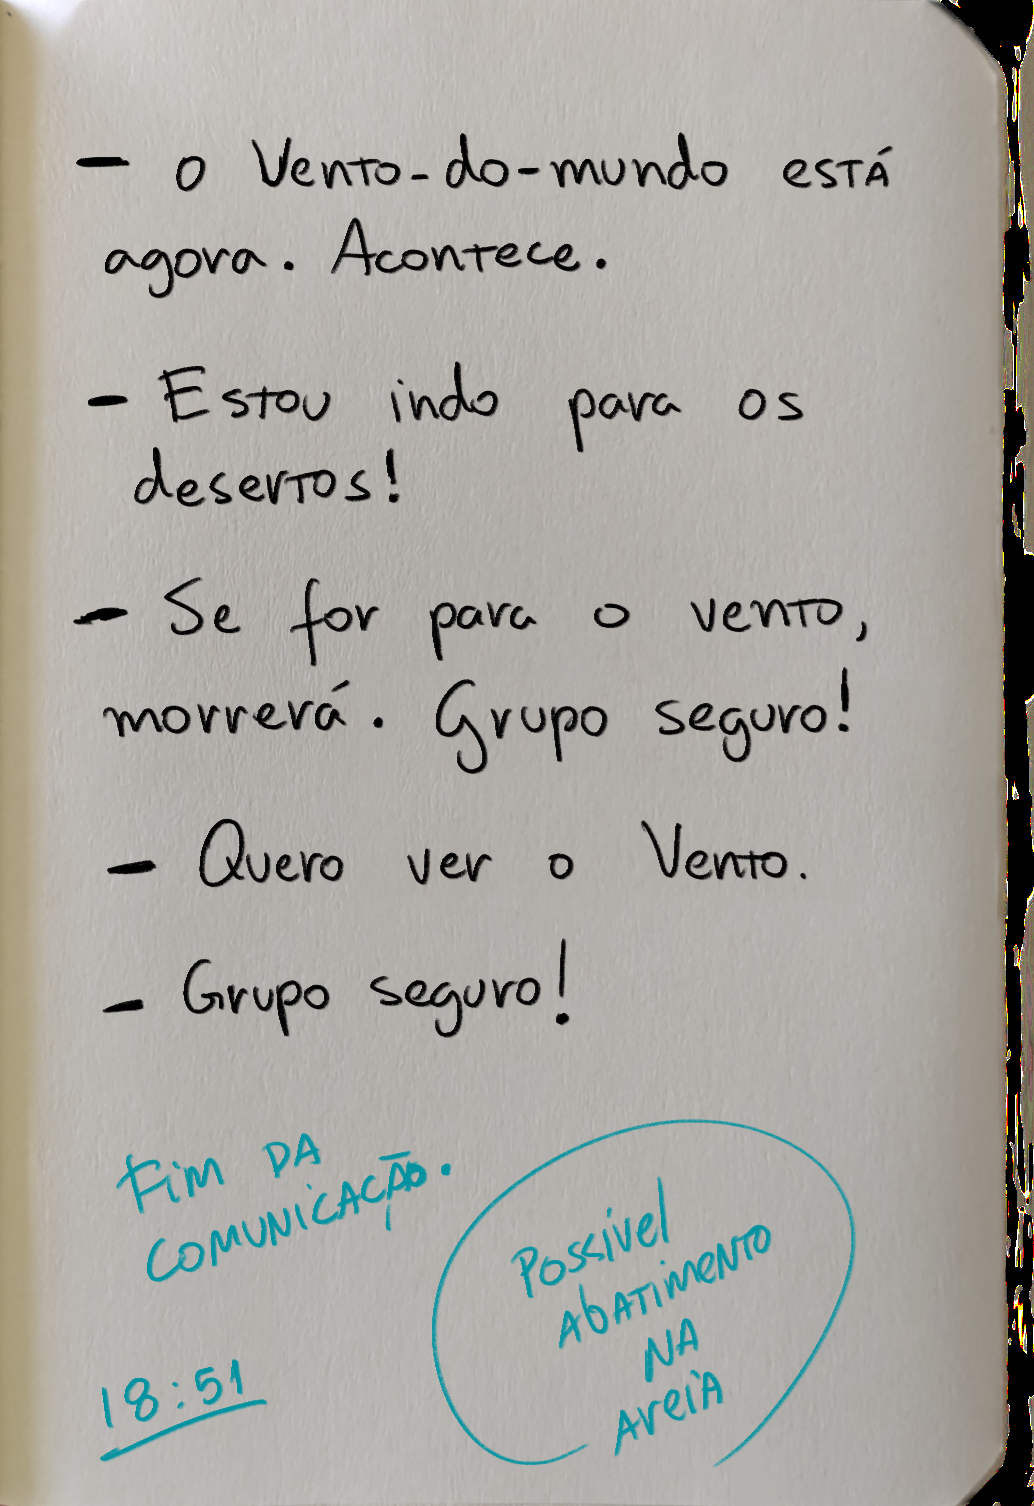 - o Vento-do-mundo está
agora. Acontece.
- Estou indo para os
desertos!
- Se for para o vento,
morrerá. Grupo seguro!
- Quero ver o Vento.
- Grupo seguro!
FIM DA
COMUNICAÇÃO.
Possível
Abatimento
NA
Areia
18:51